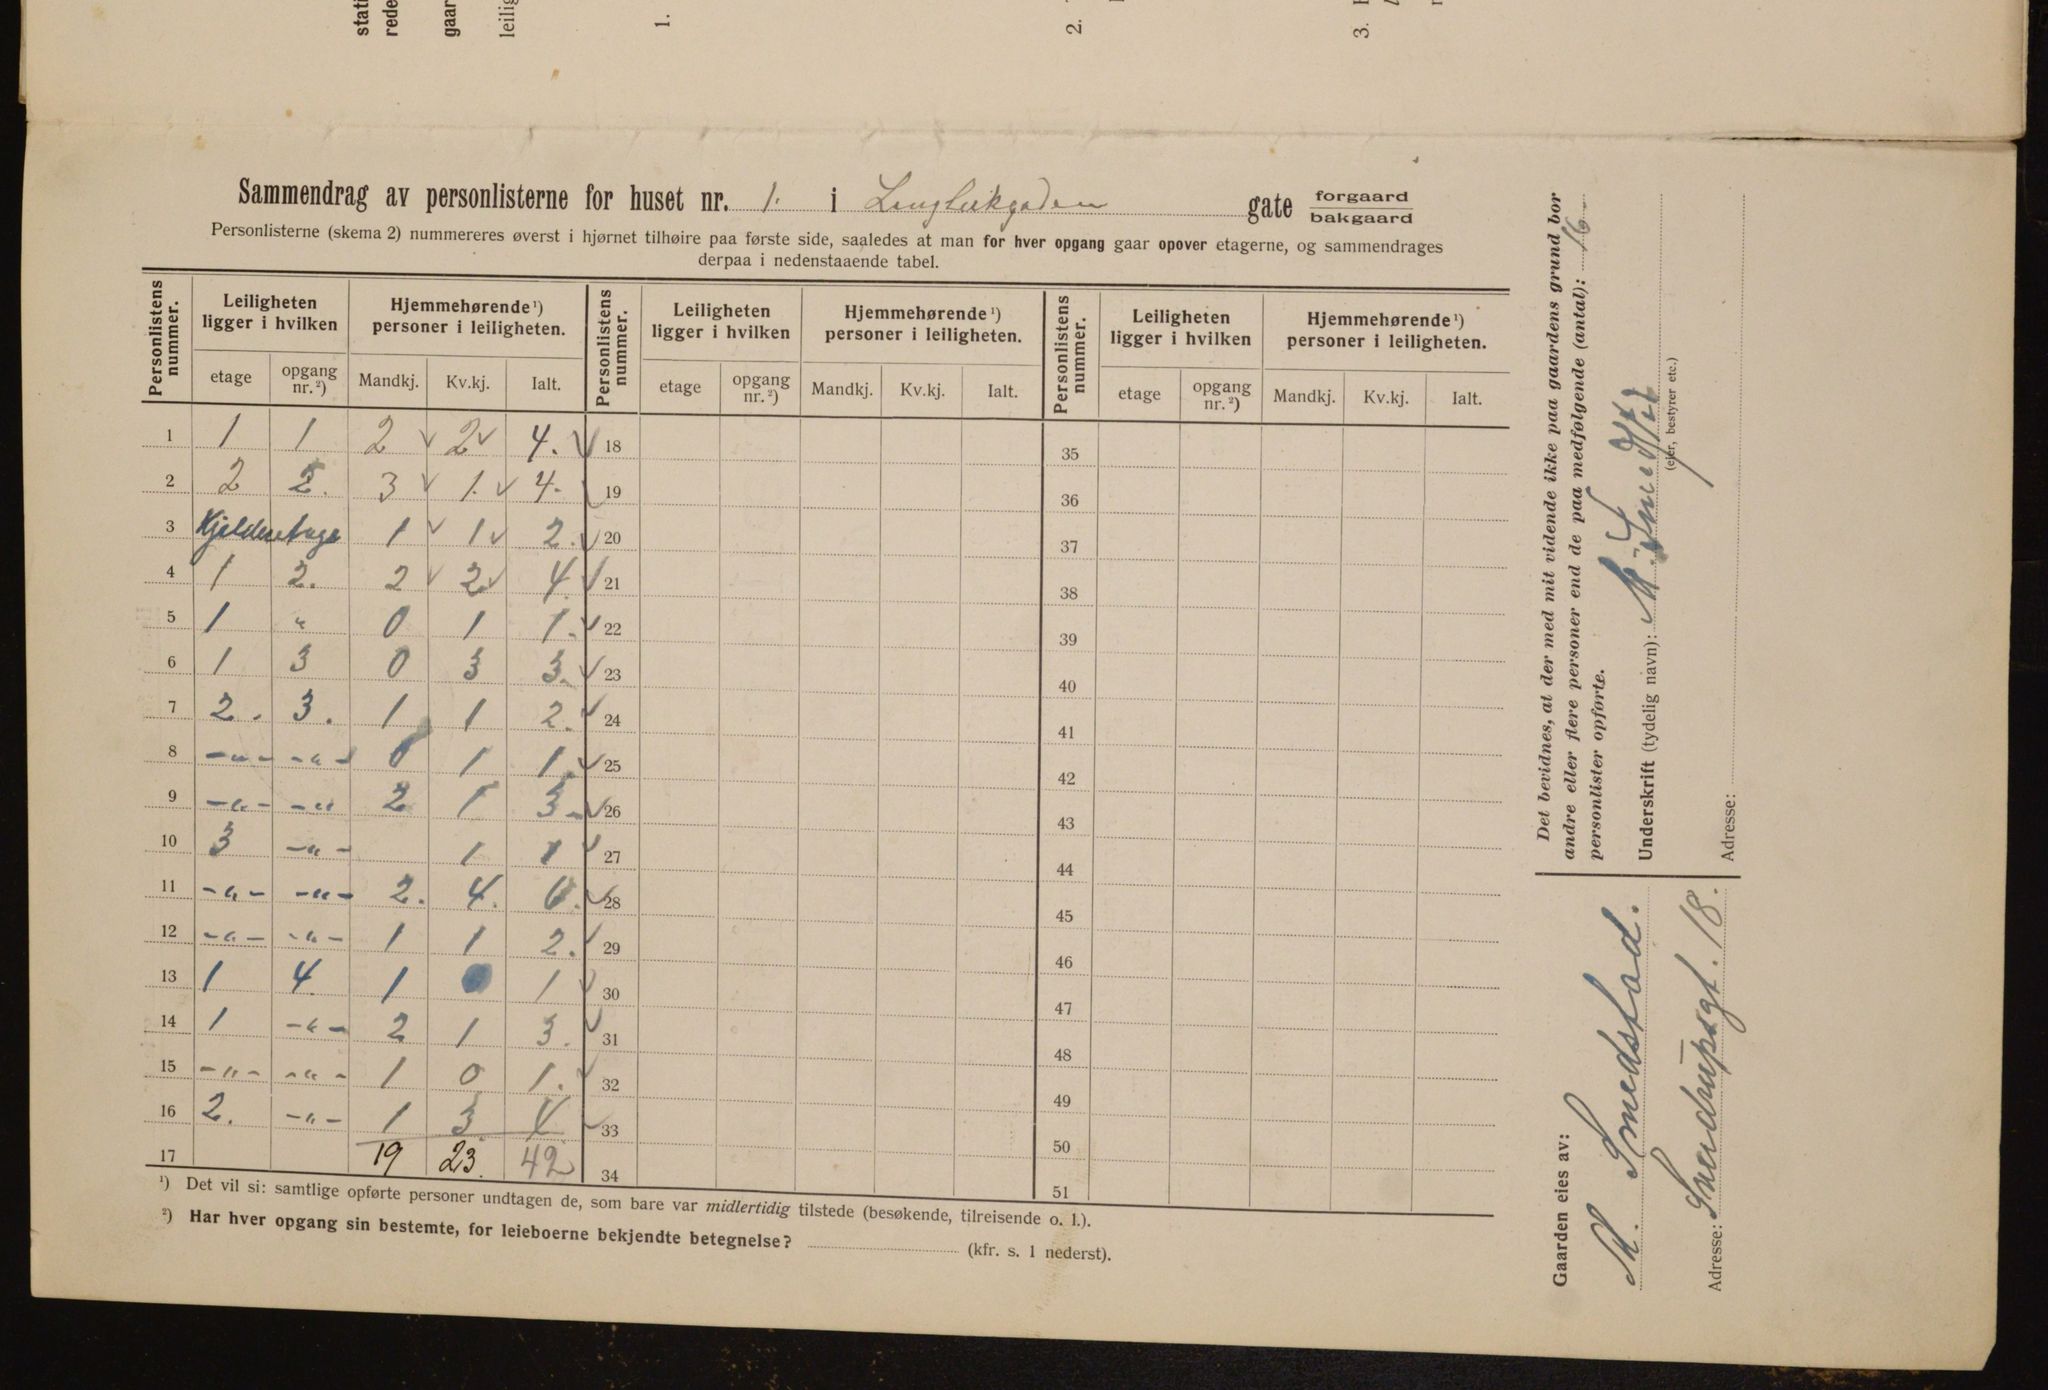 stati
rede
gaar
leilig
1.
2.
3.
Sammendrag av personlisterne for huset nr. 1. i Langleikgaden gate forgaard bakgaard
Personlisterne (skema 2) nummereres øverst i hjørnet tilhøire paa første side, saaledes at man for hver opgang gaar opover etagerne, og sammendrages
derpaa i nedenstaaende tabel.
Personlistens nummer. Leiligheten ligger i hvilken Hjemmehørende¹) personer i leiligheten. Personlistens nummer. Leiligheten ligger i hvilken Hjemmehørende¹) personer i leiligheten. Personlistens nummer. Leiligheten ligger i hvilken Hjemmehørende¹) personer i leiligheten.
etage opgang nr.²) Mandkj. Kv.kj. Ialt. etage opgang nr.²) Mandkj. Kv.kj. Ialt. etage opgang nr.²) Mandkj. Kv.kj. Ialt.
1 1 1 2 2 4. 18 35
2 2 2. 3 1. 4. 19 36
3 Kjelderetage 1 1 2. 20 37
4 1 2. 2 2 4. 21 38
5 1 " 0 1 1. 22 39
6 1 3 0 3 3. 23 40
7 2. 3. 1 1 2. 24 41
8 -"- -"- 0 1 1. 25 42
9 -"- -"- 2 1 3. 26 43
10 3 -"- 1 1 27 44
11 -"- -"- 2. 4. 6. 28 45
12 -"- -"- 1 1 2. 29 46
13 1 4. 1 1 30 47
14 1 -"- 2 1 3. 31 48
15 -"- -"- 1 0 1. 32 49
16 2. -"- 1 3. 4. 33 50
17 19 23. 42 34 51
¹) Det vil si: samtlige opførte personer undtagen de, som bare var midlertidig tilstede (besøkende, tilreisende o. l.).
²) Har hver opgang sin bestemte, for leieboerne bekjendte betegnelse? (kfr. s. 1 nederst).
Det bevidnes, at der med mit vidende ikke paa gaardens grund bor
andre eller flere personer end de paa medfølgende (antal): 16
personlister opførte.
Underskrift (tydelig navn):
(eier, bestyrer etc.)
Adresse:
Gaarden eies av:
M. Smedstad.
Adresse: Sverdrupsgt. 18.